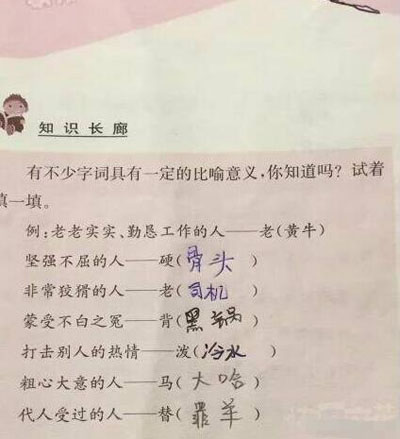 知识长廊
有不少字词具有一定的比喻意义,你知道吗?试着
填一填。
例:老老实实、勤恳工作的人——老(黄牛)
坚强不屈的人——硬(骨头)
非常狡猾的人——老(司机)
蒙受不白之冤——背(黑锅)
打击别人的热情——泼(冷水)
粗心大意的人——马(大哈)
代人受过的人——替(罪羊)